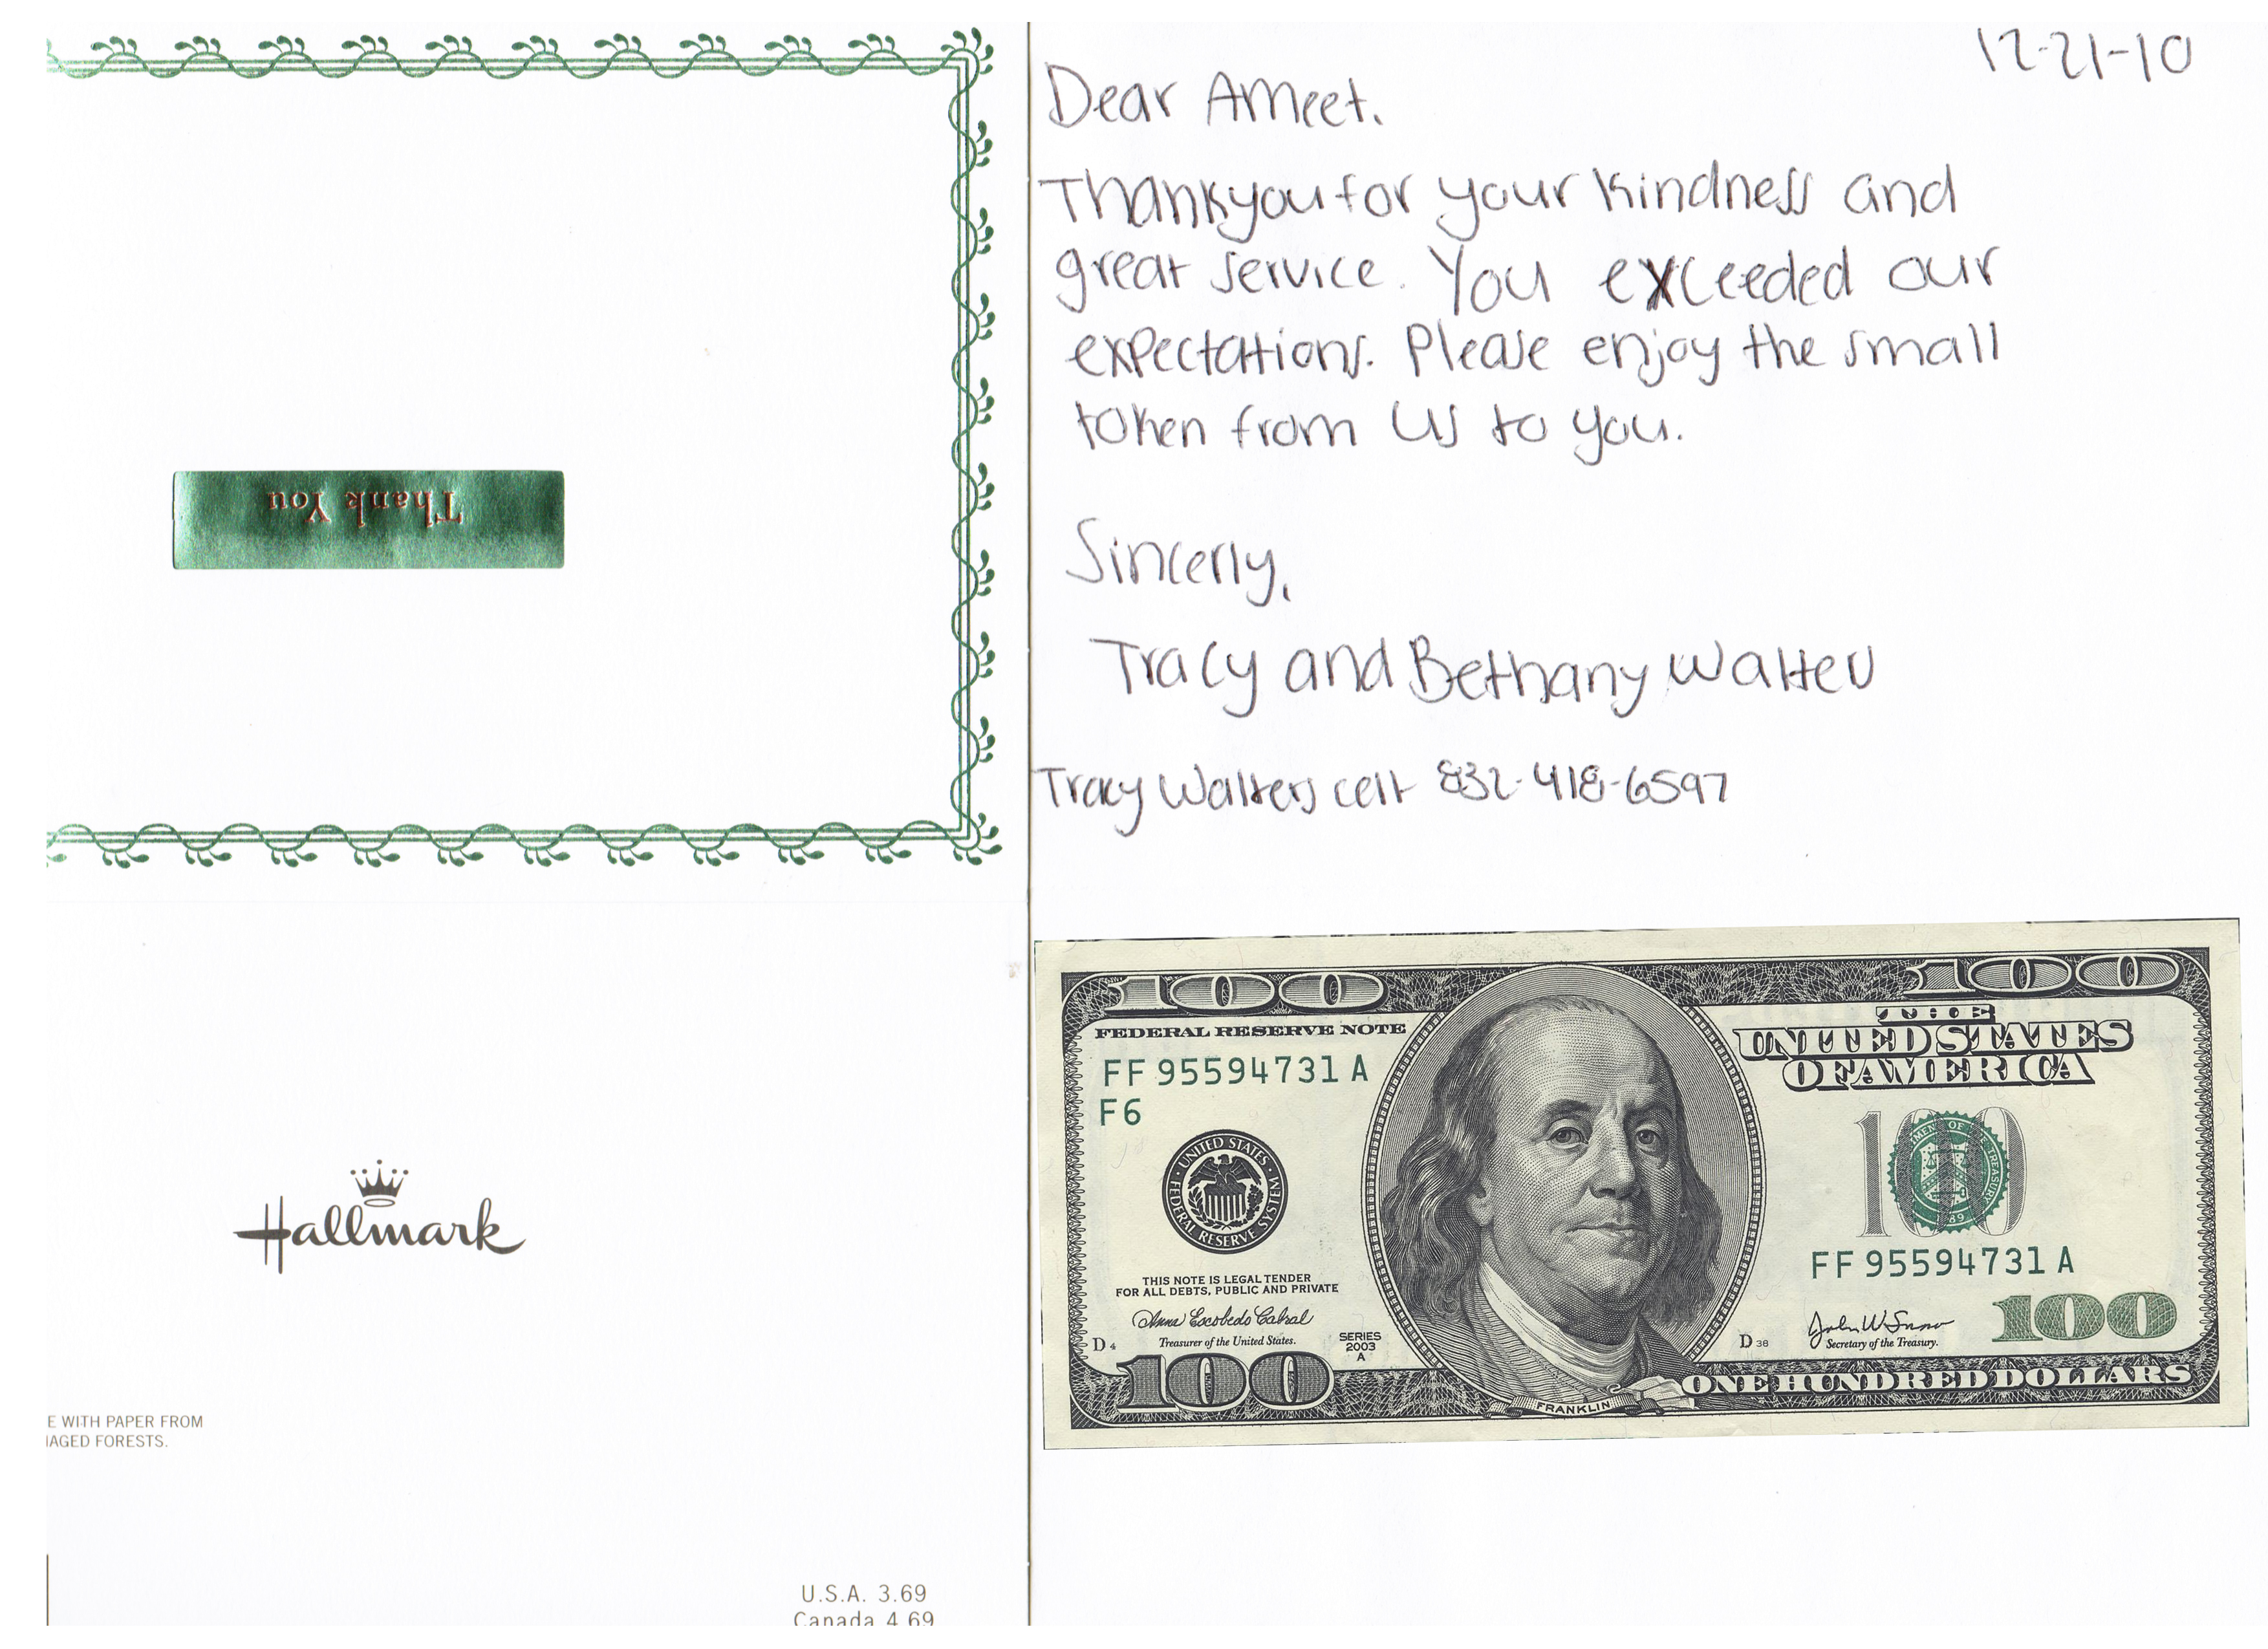 Thank You
Hallmark
E WITH PAPER FROM
AGED FORESTS.
U.S.A. 3.69
Canada 4.69
12-21-10
Dear Ameet,
Thankyou for your kindness and
great service. You exceeded our
expectations. Please enjoy the small
token from us to you.
Sincerly,
Tracy and Bethany Walters
Tracy Walters cell 832-418-6597
100 100
FEDERAL RESERVE NOTE
THE
UNITED STATES
OF AMERICA
FF 95594731 A
F6
UNITED STATES FEDERAL RESERVE SYSTEM
100
FF 95594731 A
THIS NOTE IS LEGAL TENDER
FOR ALL DEBTS, PUBLIC AND PRIVATE
Anna Escobedo Cabral
Treasurer of the United States.
SERIES
2003
A
D 4
D 38
John W Snow
Secretary of the Treasury.
100
100
FRANKLIN
ONE HUNDRED DOLLARS